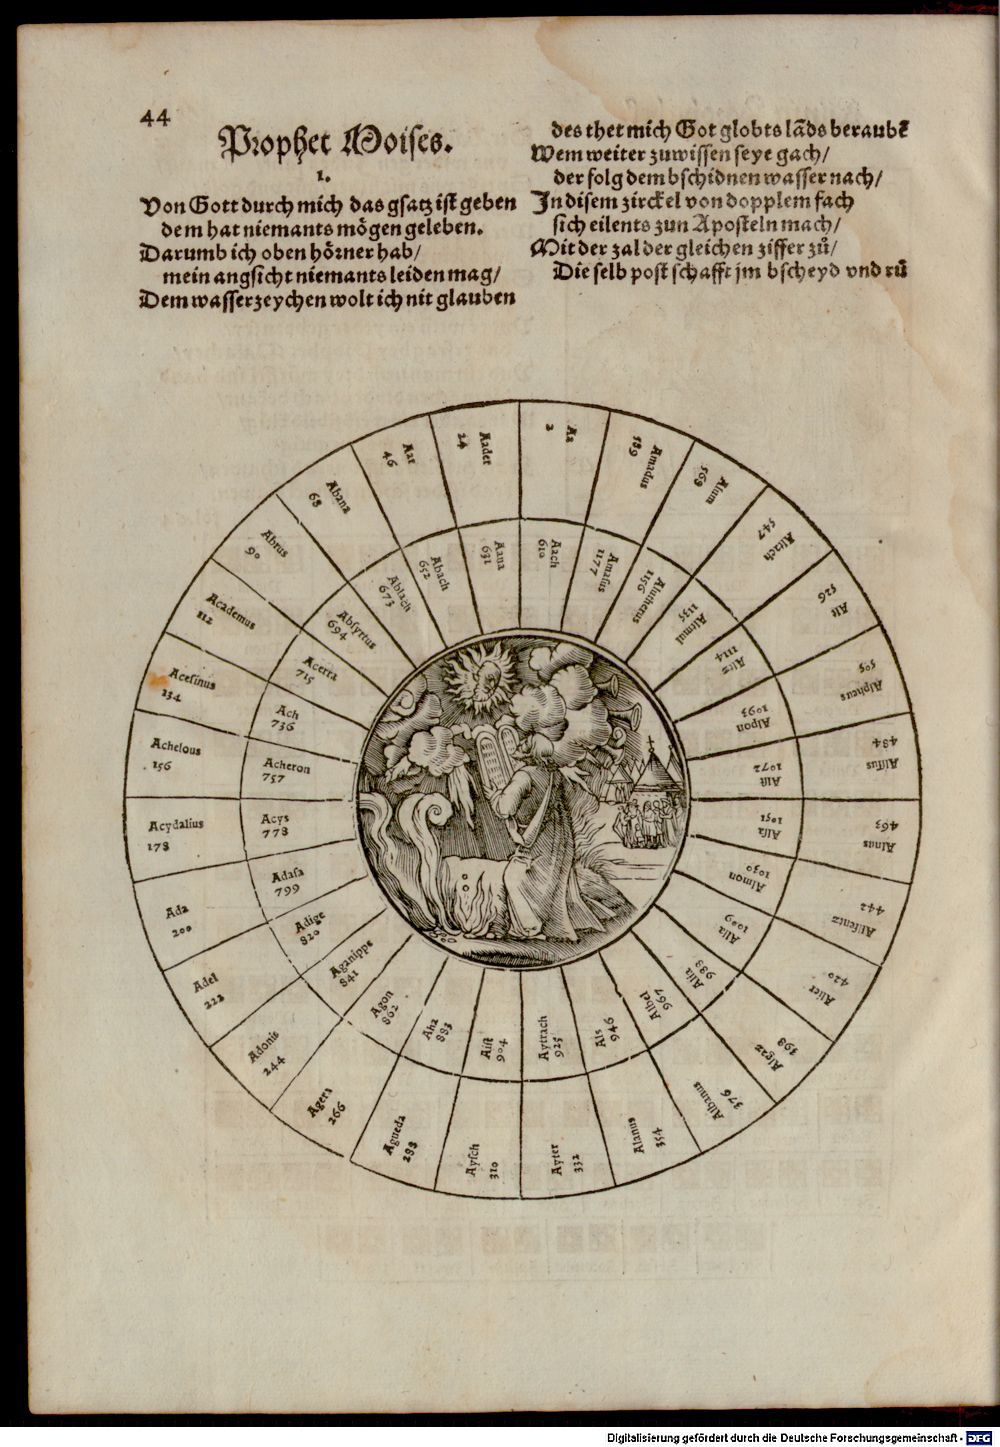 44
Prophet Moises.
1.
Von Gott durch mich das gsatz ist geben
dem hat niemants mögen geleben.
Darumb ich oben hörner hab/
mein angsicht niemants leiden mag/
Dem wasserzeychen wolt ich nit glauben
des thet mich Got globts lāds beraubē
Wem weiter zuwissen seye gach/
der folg dem bschidnen wasser nach/
In disem zirckel von dopplem fach
sich eilents zun Aposteln mach/
Mit der zal der gleichen ziffer zů/
Die selb post schafft jm bscheyd vnd rů
Aa
2
Amadus
589
Alum
569
Altach
547
Alt
526
Alpheus
505
Alssus
484
Alnus
463
Allsentz
442
Aller
420
Algaz
398
Albanus
376
Alanus
354
Ayter
332
Aysch
310
Agueda
288
Agera
266
Adonis
244
Adel
222
Ada
200
Acydalius
178
Achelous
156
Acesinus
134
Academus
112
Abrus
90
Abana
68
Aar
46
Aader
24
Aach
610
Amasus
1177
Alutherus
1156
Altmul
1135
Altz
1114
Alpon
1093
Alst
1072
Alsa
1051
Almon
1030
Alla
1009
Alia
988
Albel
967
Als
946
Aytrach
925
Aist
904
Aha
883
Agon
862
Aganippe
841
Adige
820
Adasa
799
Acys
778
Acheron
757
Ach
736
Acerra
715
Absyrtus
694
Ablach
673
Abach
652
Aana
631
Digitalisierung gefördert durch die Deutsche Forschungsgemeinschaft - DFG